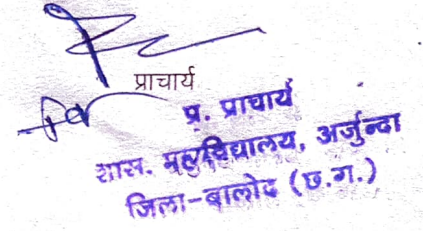 प्राचार्य
प्र. प्राचार्य
शास. महाविद्यालय, अर्जुन्दा
जिला-बालोद (छ.ग.)